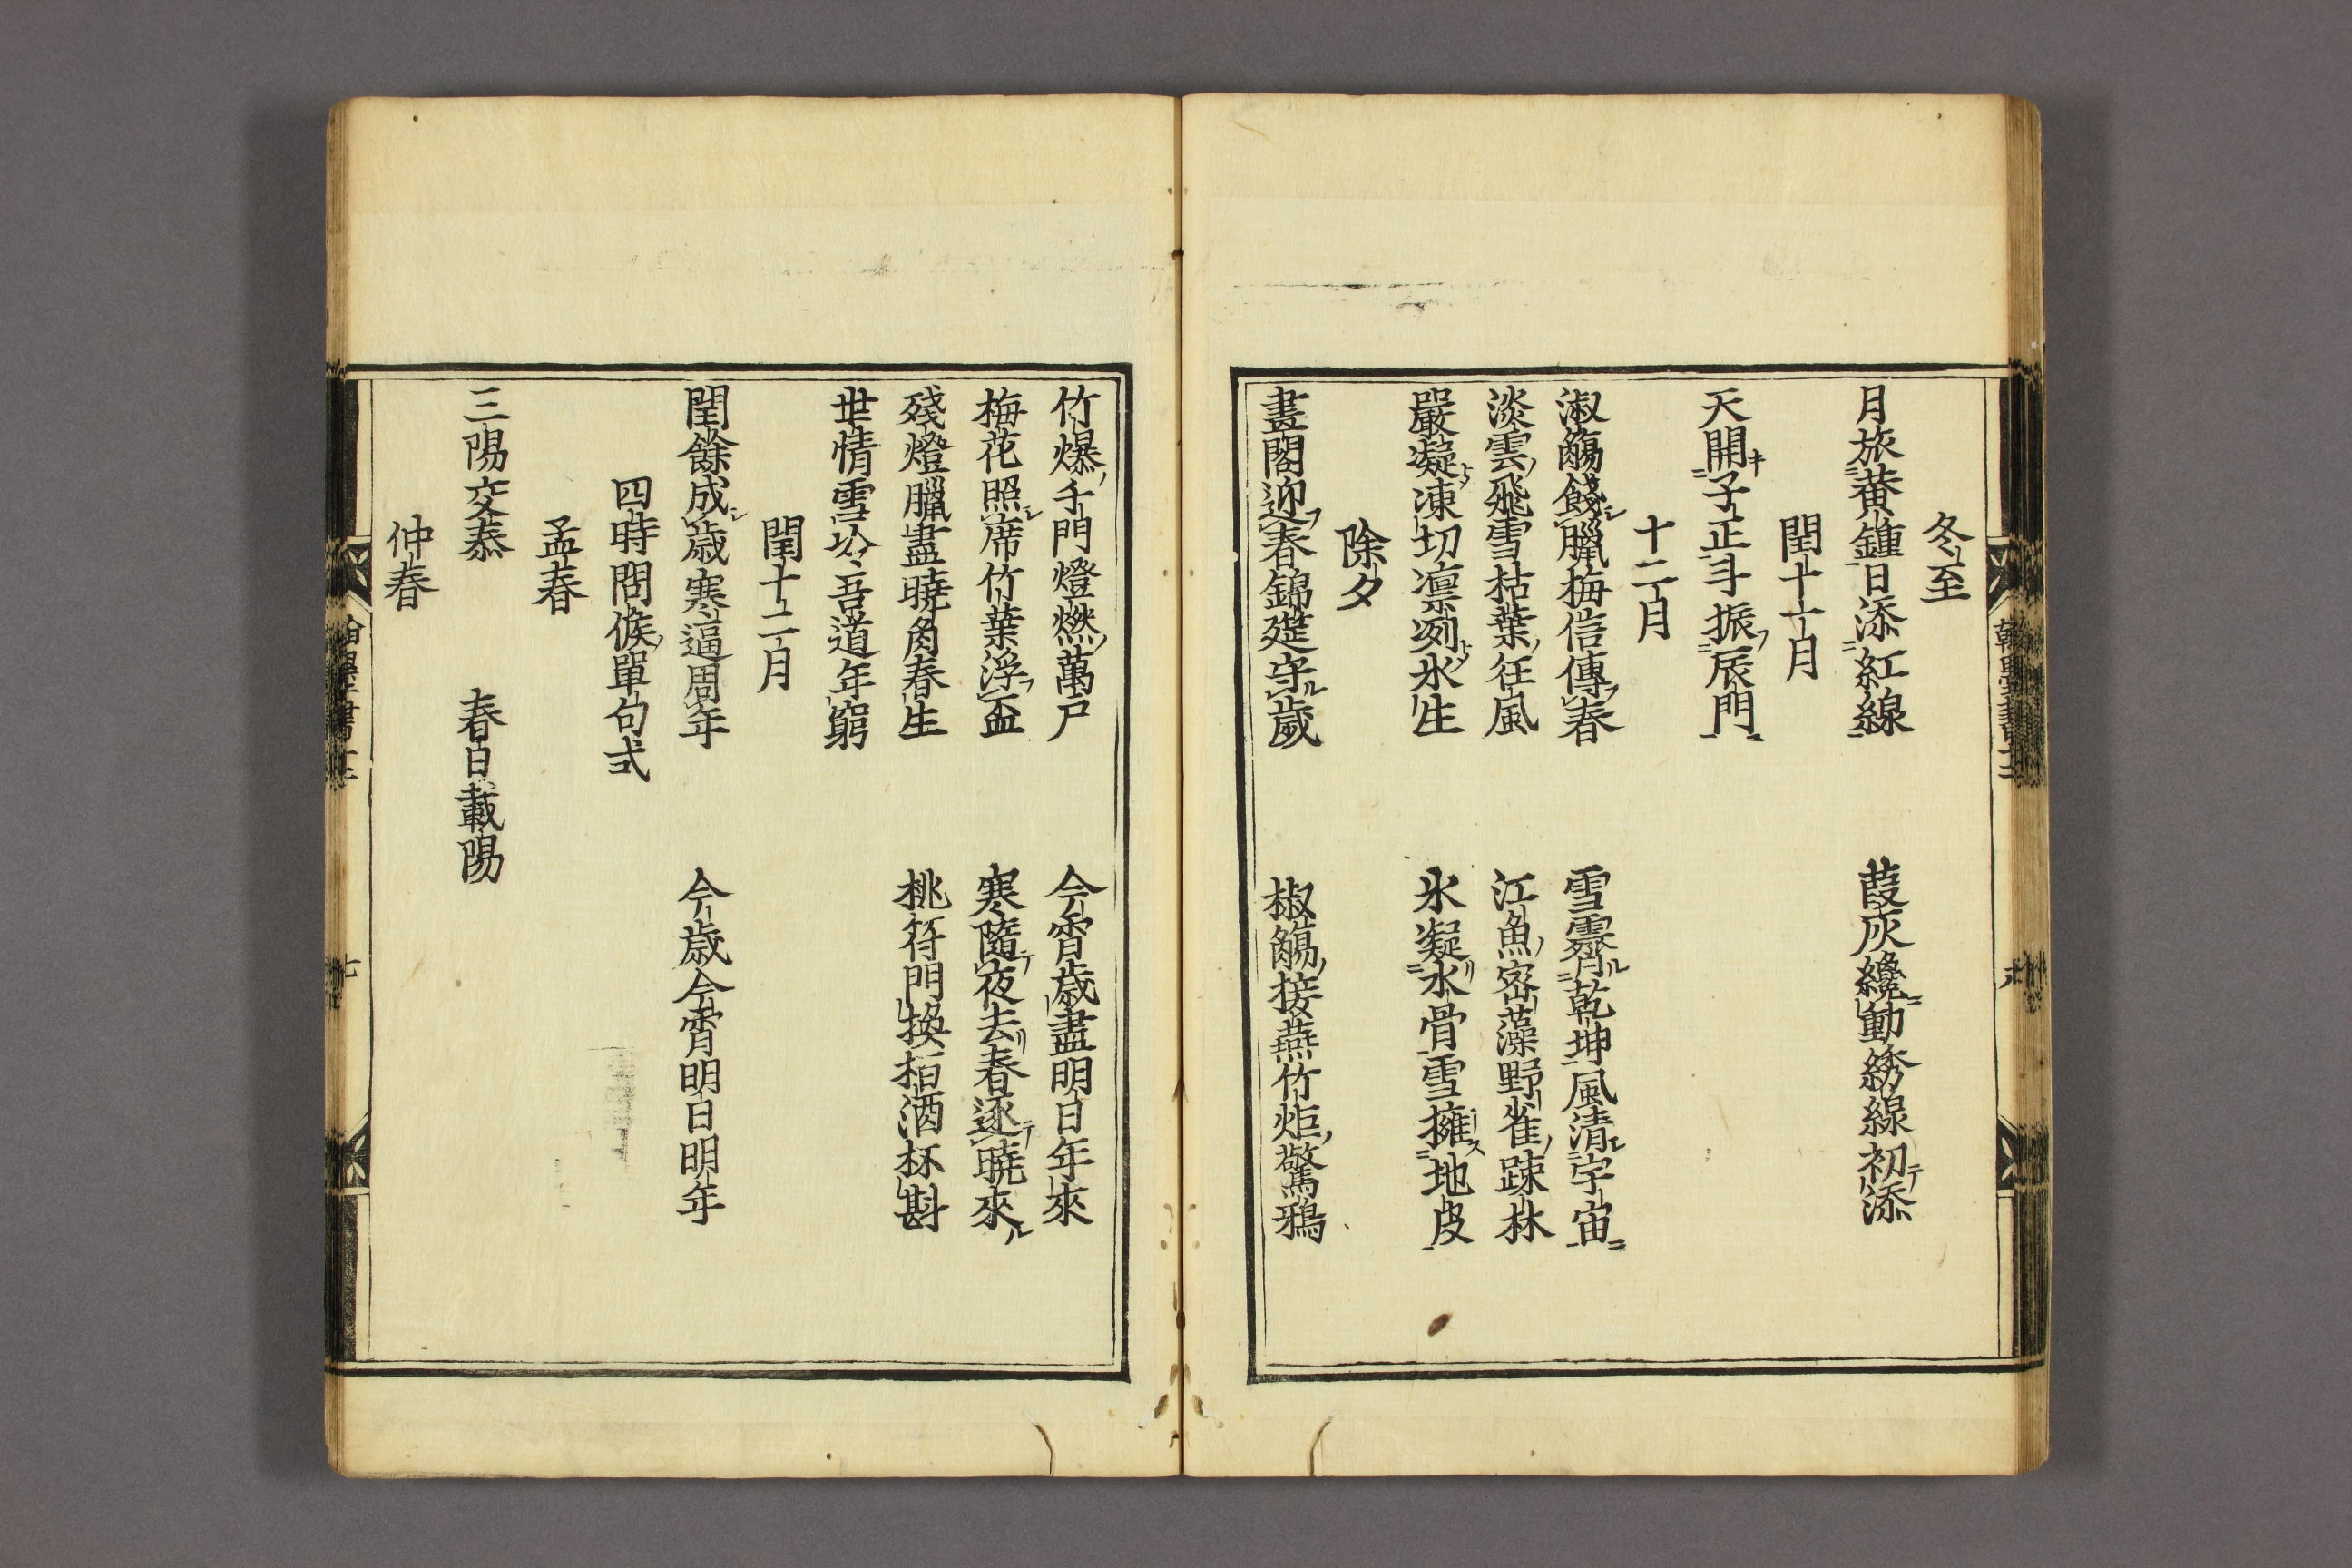 冬至
月旅黄鍾日添紅線　葭灰纔動綉線初添
閏十一月
天開子正斗振辰門
十二月
淑觴餞臘梅信傳春　雪霽乾坤風清宇宙
淡雲飛雪枯葉狂風　江魚密藻野雀踈林
嚴凝凍切凛冽氷生　氷凝水骨雪擁地皮
除夕
畫閣迎春錦筵守歲　椒觴接燕竹炬驚鴉
竹爆千門燈燃萬戸　今宵歳盡明日年來
梅花照席竹葉浮盃　寒隨夜去春逐曉來
殘燈臘盡曉角春生　桃符門換栢酒杯斟
世情雪冷吾道年窮
閏十二月
閏餘成歳寒逼周年　今歳今宵明日明年
四時問候單句式
孟春
三陽交泰　春日載陽
仲春
七